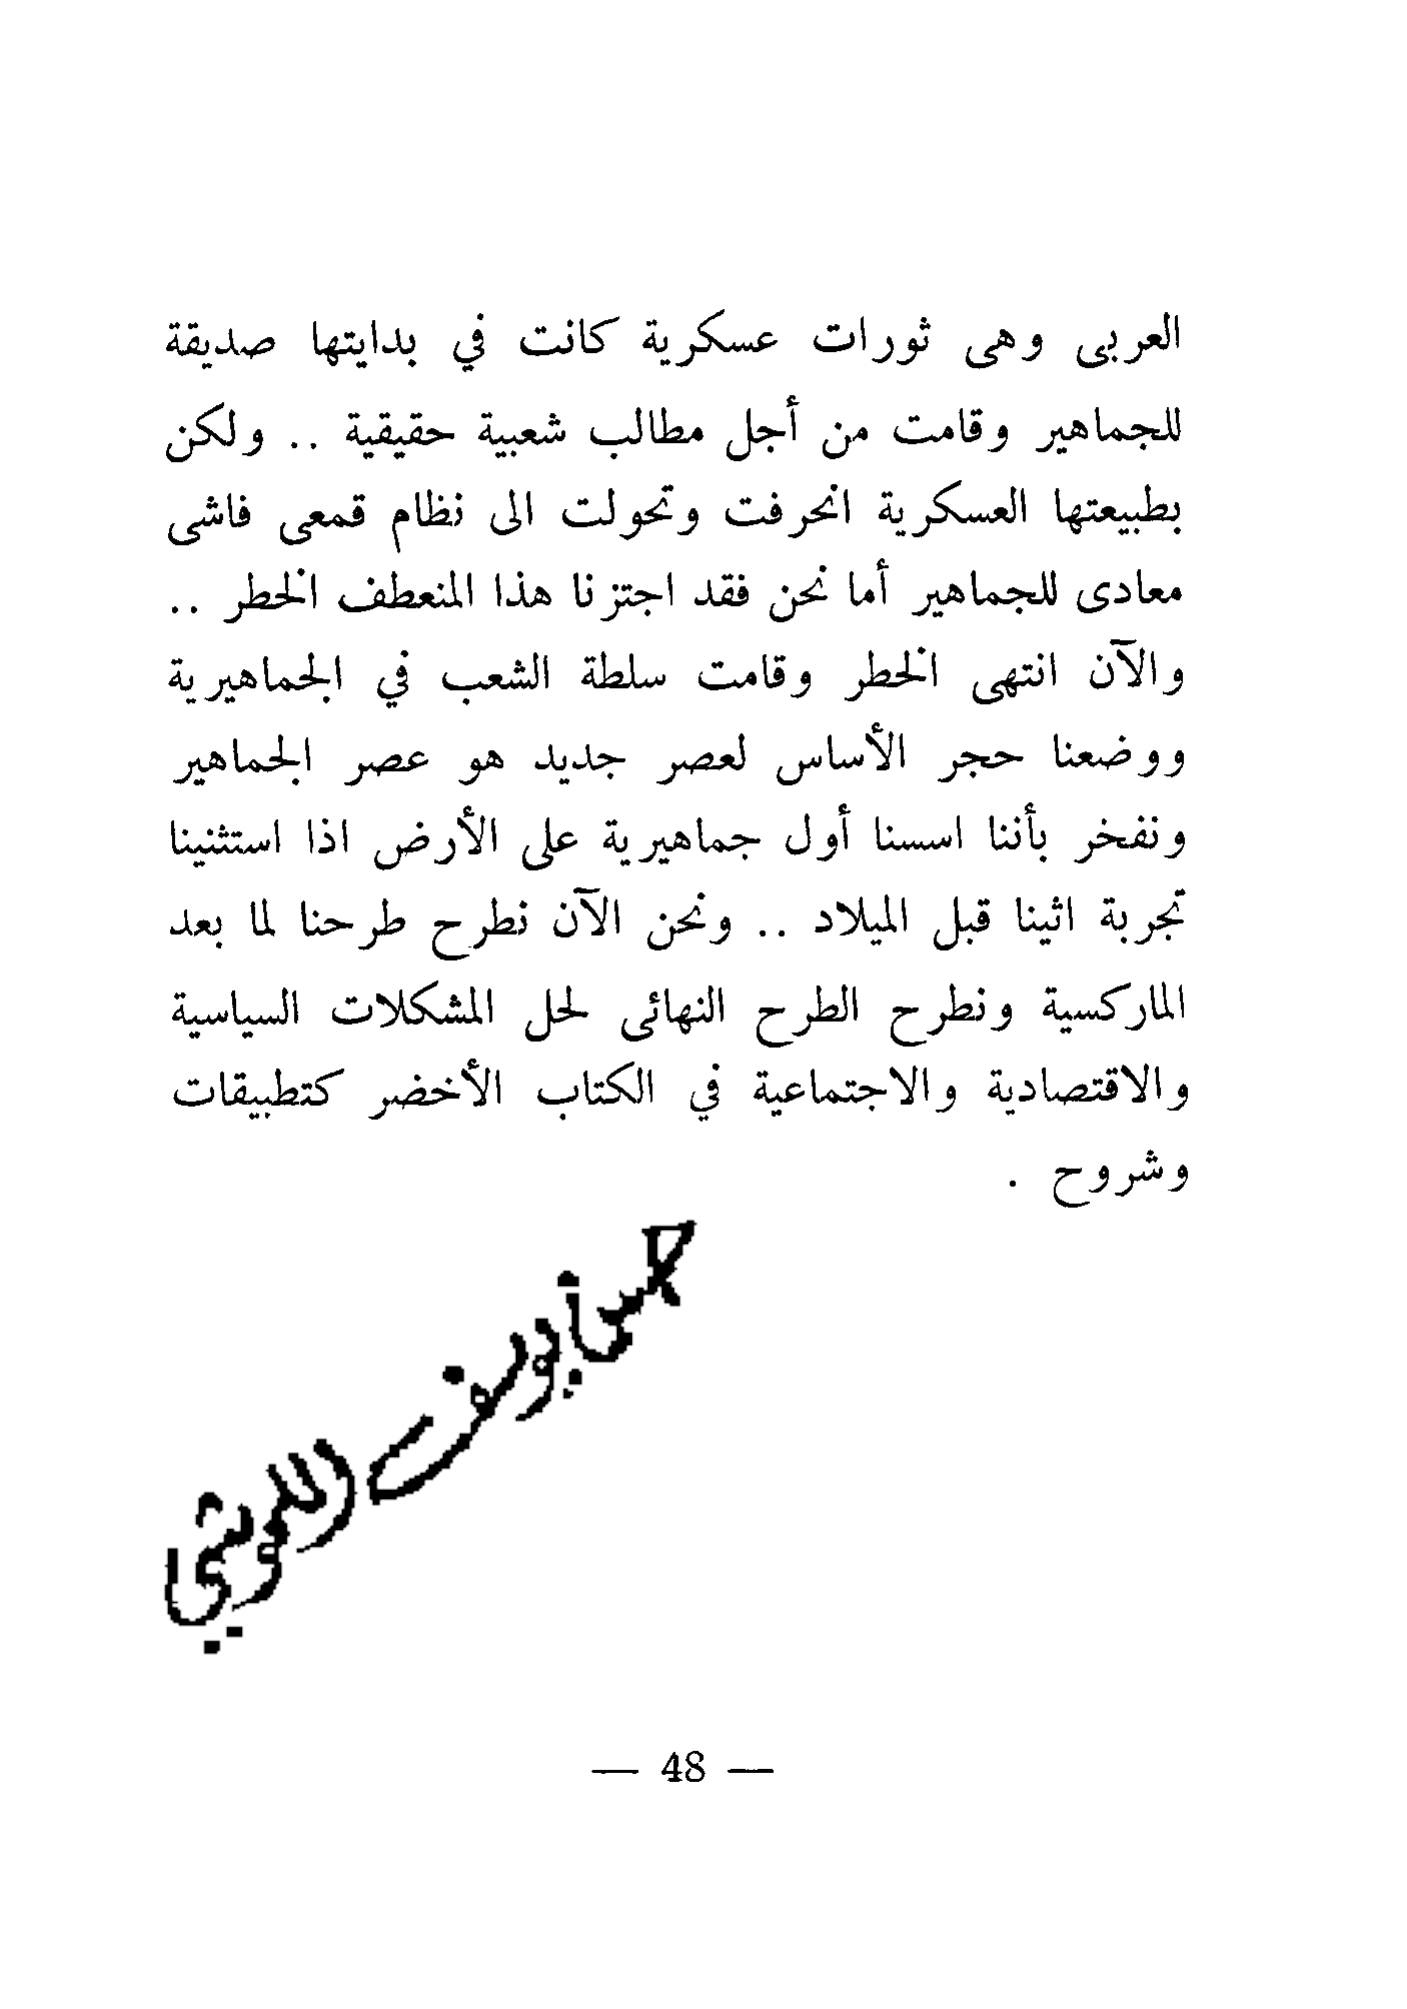 العربى وهى ثورات عسكرية كانت في بدايتها صديقة
للجماهير وقامت من أجل مطالب شعبية حقيقية .. ولكن
بطبيعتها العسكرية انحرفت وتحولت الى نظام قمعى فاشى
معادى للجماهير أما نحن فقد اجتزنا هذا المنعطف الخطر ..
والآن انتهى الخطر وقامت سلطة الشعب في الجماهيرية
ووضعنا حجر الأساس لعصر جديد هو عصر الجماهير
ونفخر بأننا اسسنا أول جماهيرية على الأرض اذا استثنينا
تجربة اثينا قبل الميلاد .. ونحن الآن نطرح طرحنا لما بعد
الماركسية ونطرح الطرح النهائى لحل المشكلات السياسية
والاقتصادية والاجتماعية في الكتاب الأخضر كتطبيقات
وشروح .
يوسف
— 48 —